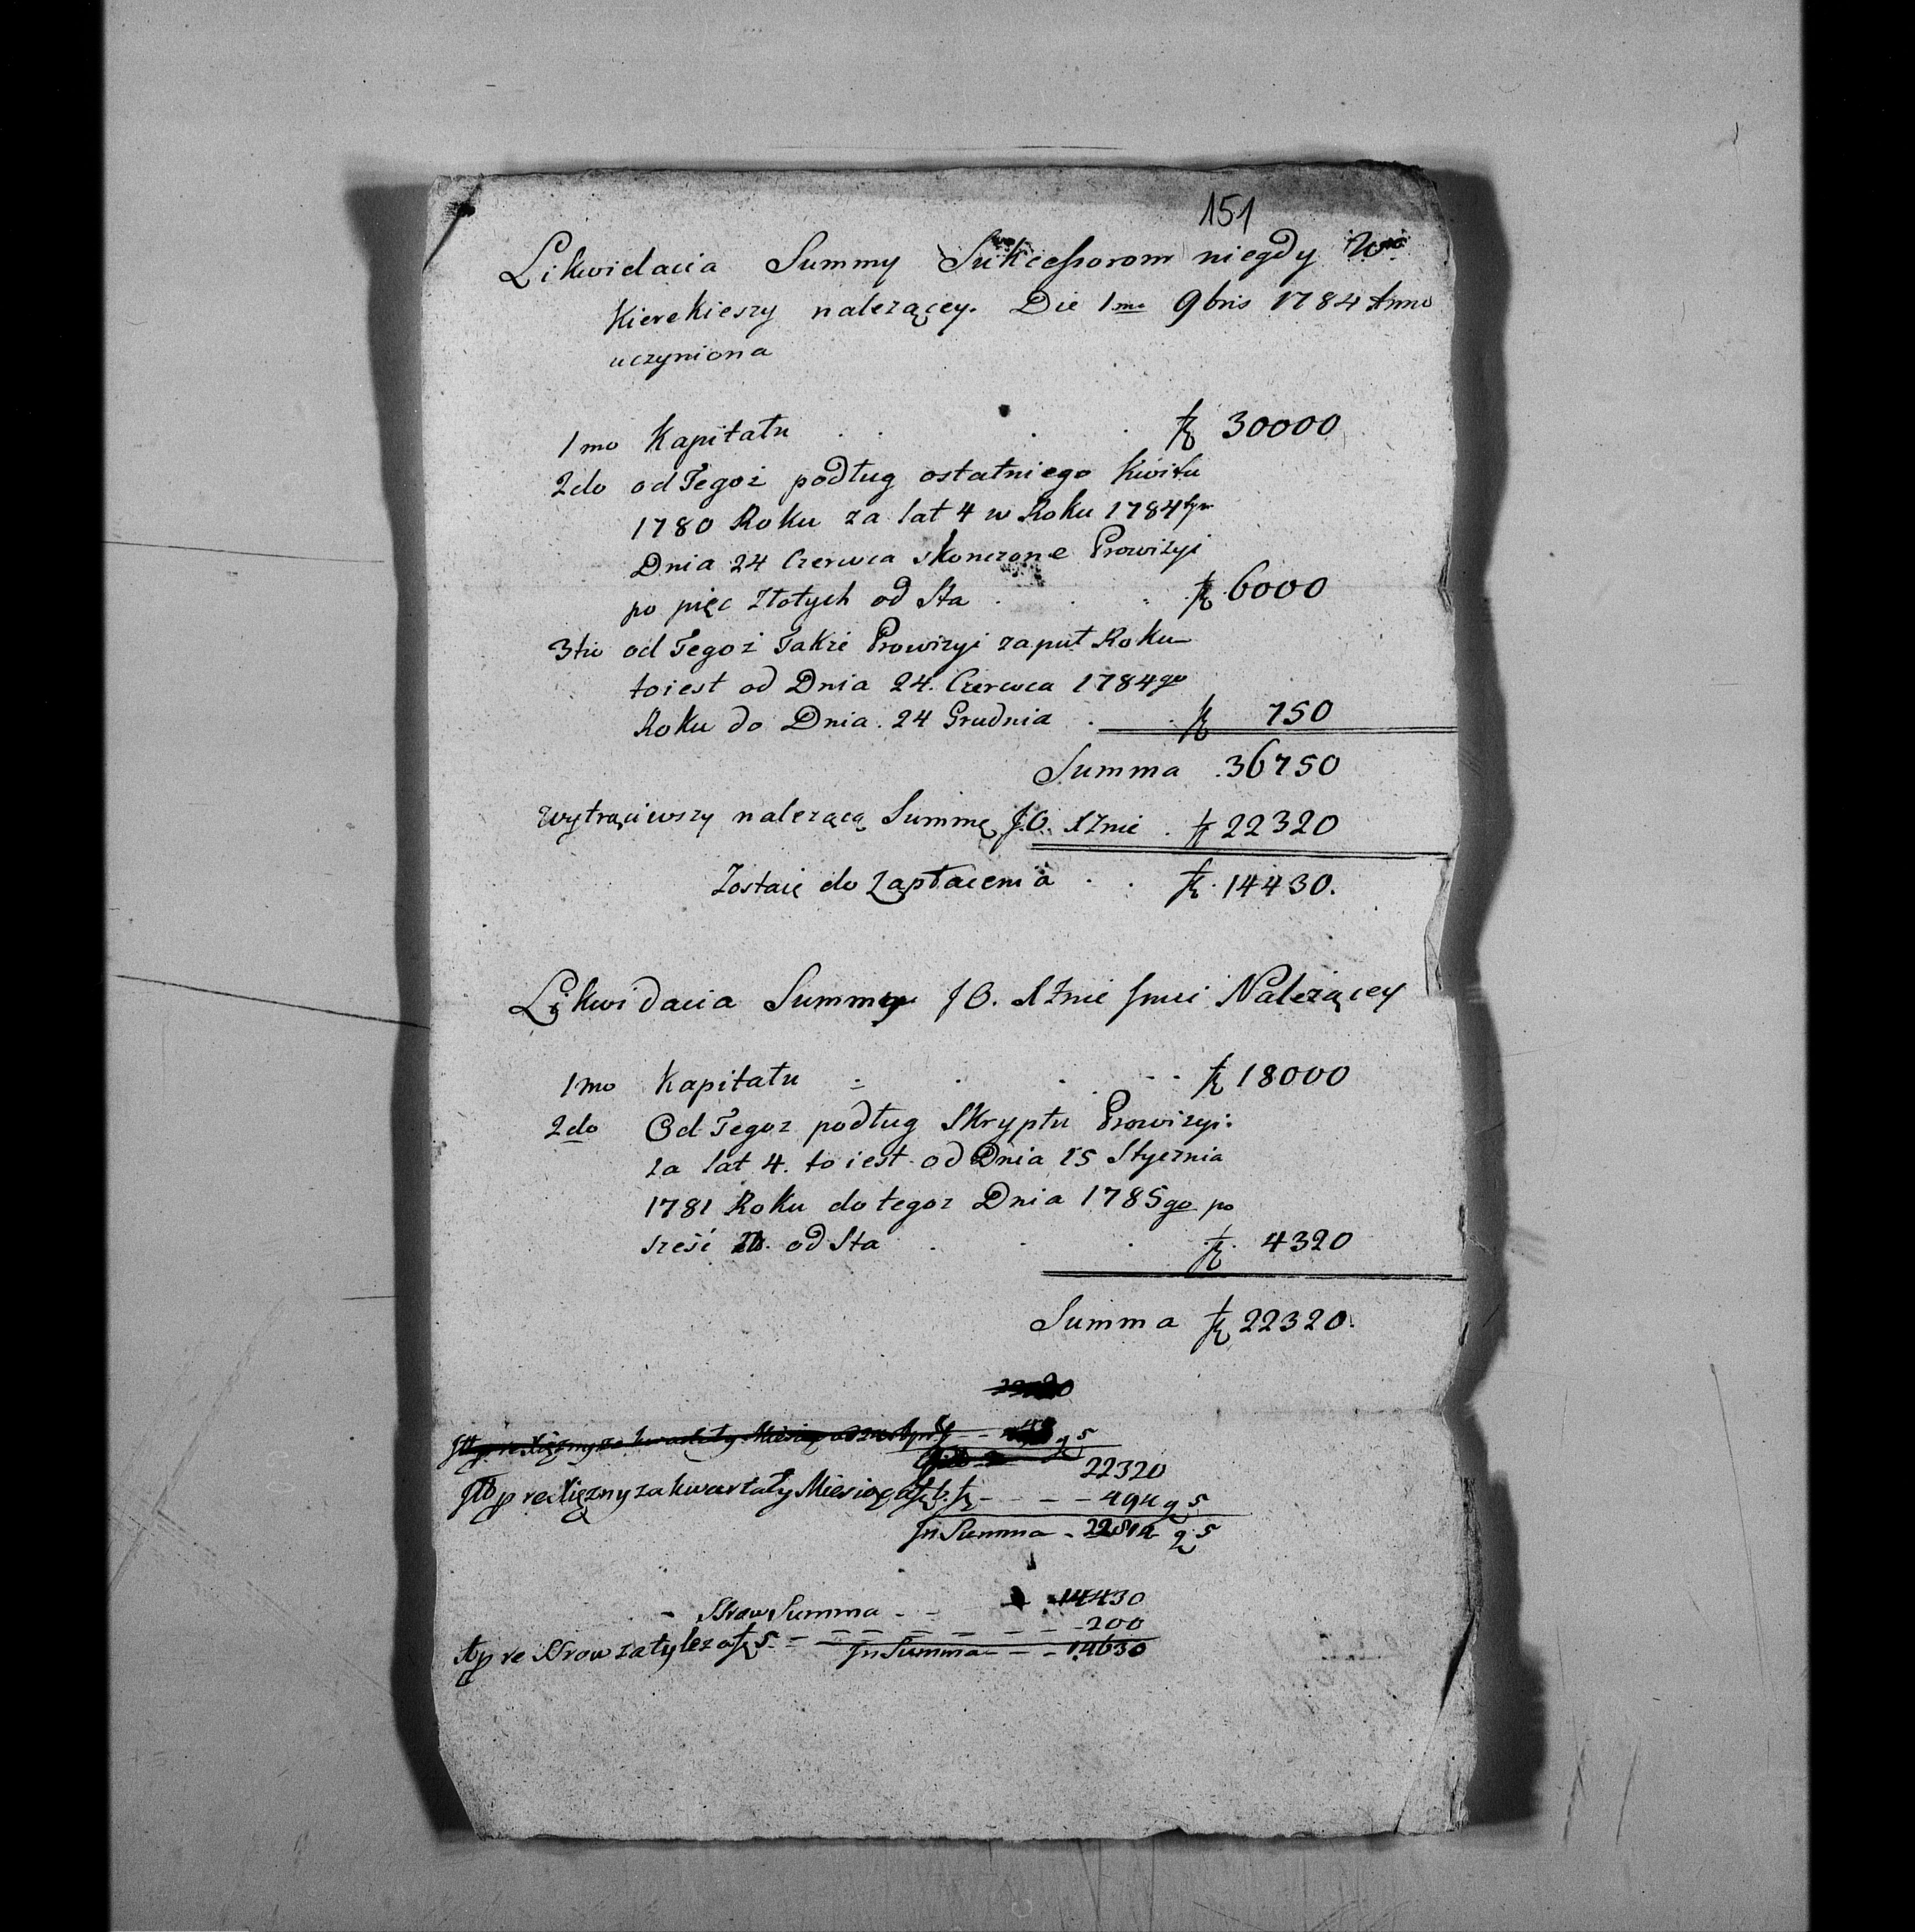 151
Likwidacia Summy Sukcessorom niegdy W
Kierekieszy nalezącey. Die 1ma 9bris 1784 Anno
uczyniona
1mo Kapitału . . . . 30000
2do od Tegoż podług ostatniego Kwitu
1780 Roku za lat 4 w Roku 1784tym
Dnia 24 Czerwca skonczone Prowizyi
po pięc Złotych od Sta . . . 6000
3tio od Tegoż Takze Prowizyi za puł Roku
to iest od Dnia 24. Czerwca 1784go
Roku do Dnia. 24 Grudnia . . 750
Summa . 36750
Wytrąciwszy nalezącą Summę J.O. XZnie . 22320
Zostaie do Zapłacenia . . 14430.
Likwidacia Summy JO. XZnie Jmci Nalezącey
1mo Kapitału . . . . . 18000
2do Od Tegoz podług Skryptu Prowizyi.
za lat 4. to iest od Dnia 15 Stycznia
1781 Roku do tegoz Dnia 1785go po
sześć Zł. od Sta . . . 4320
Summa 22320.
22320
za kwartały Miesiąc
Jn Summa
Summa - - 14430
200
Jn Summa - - 14630